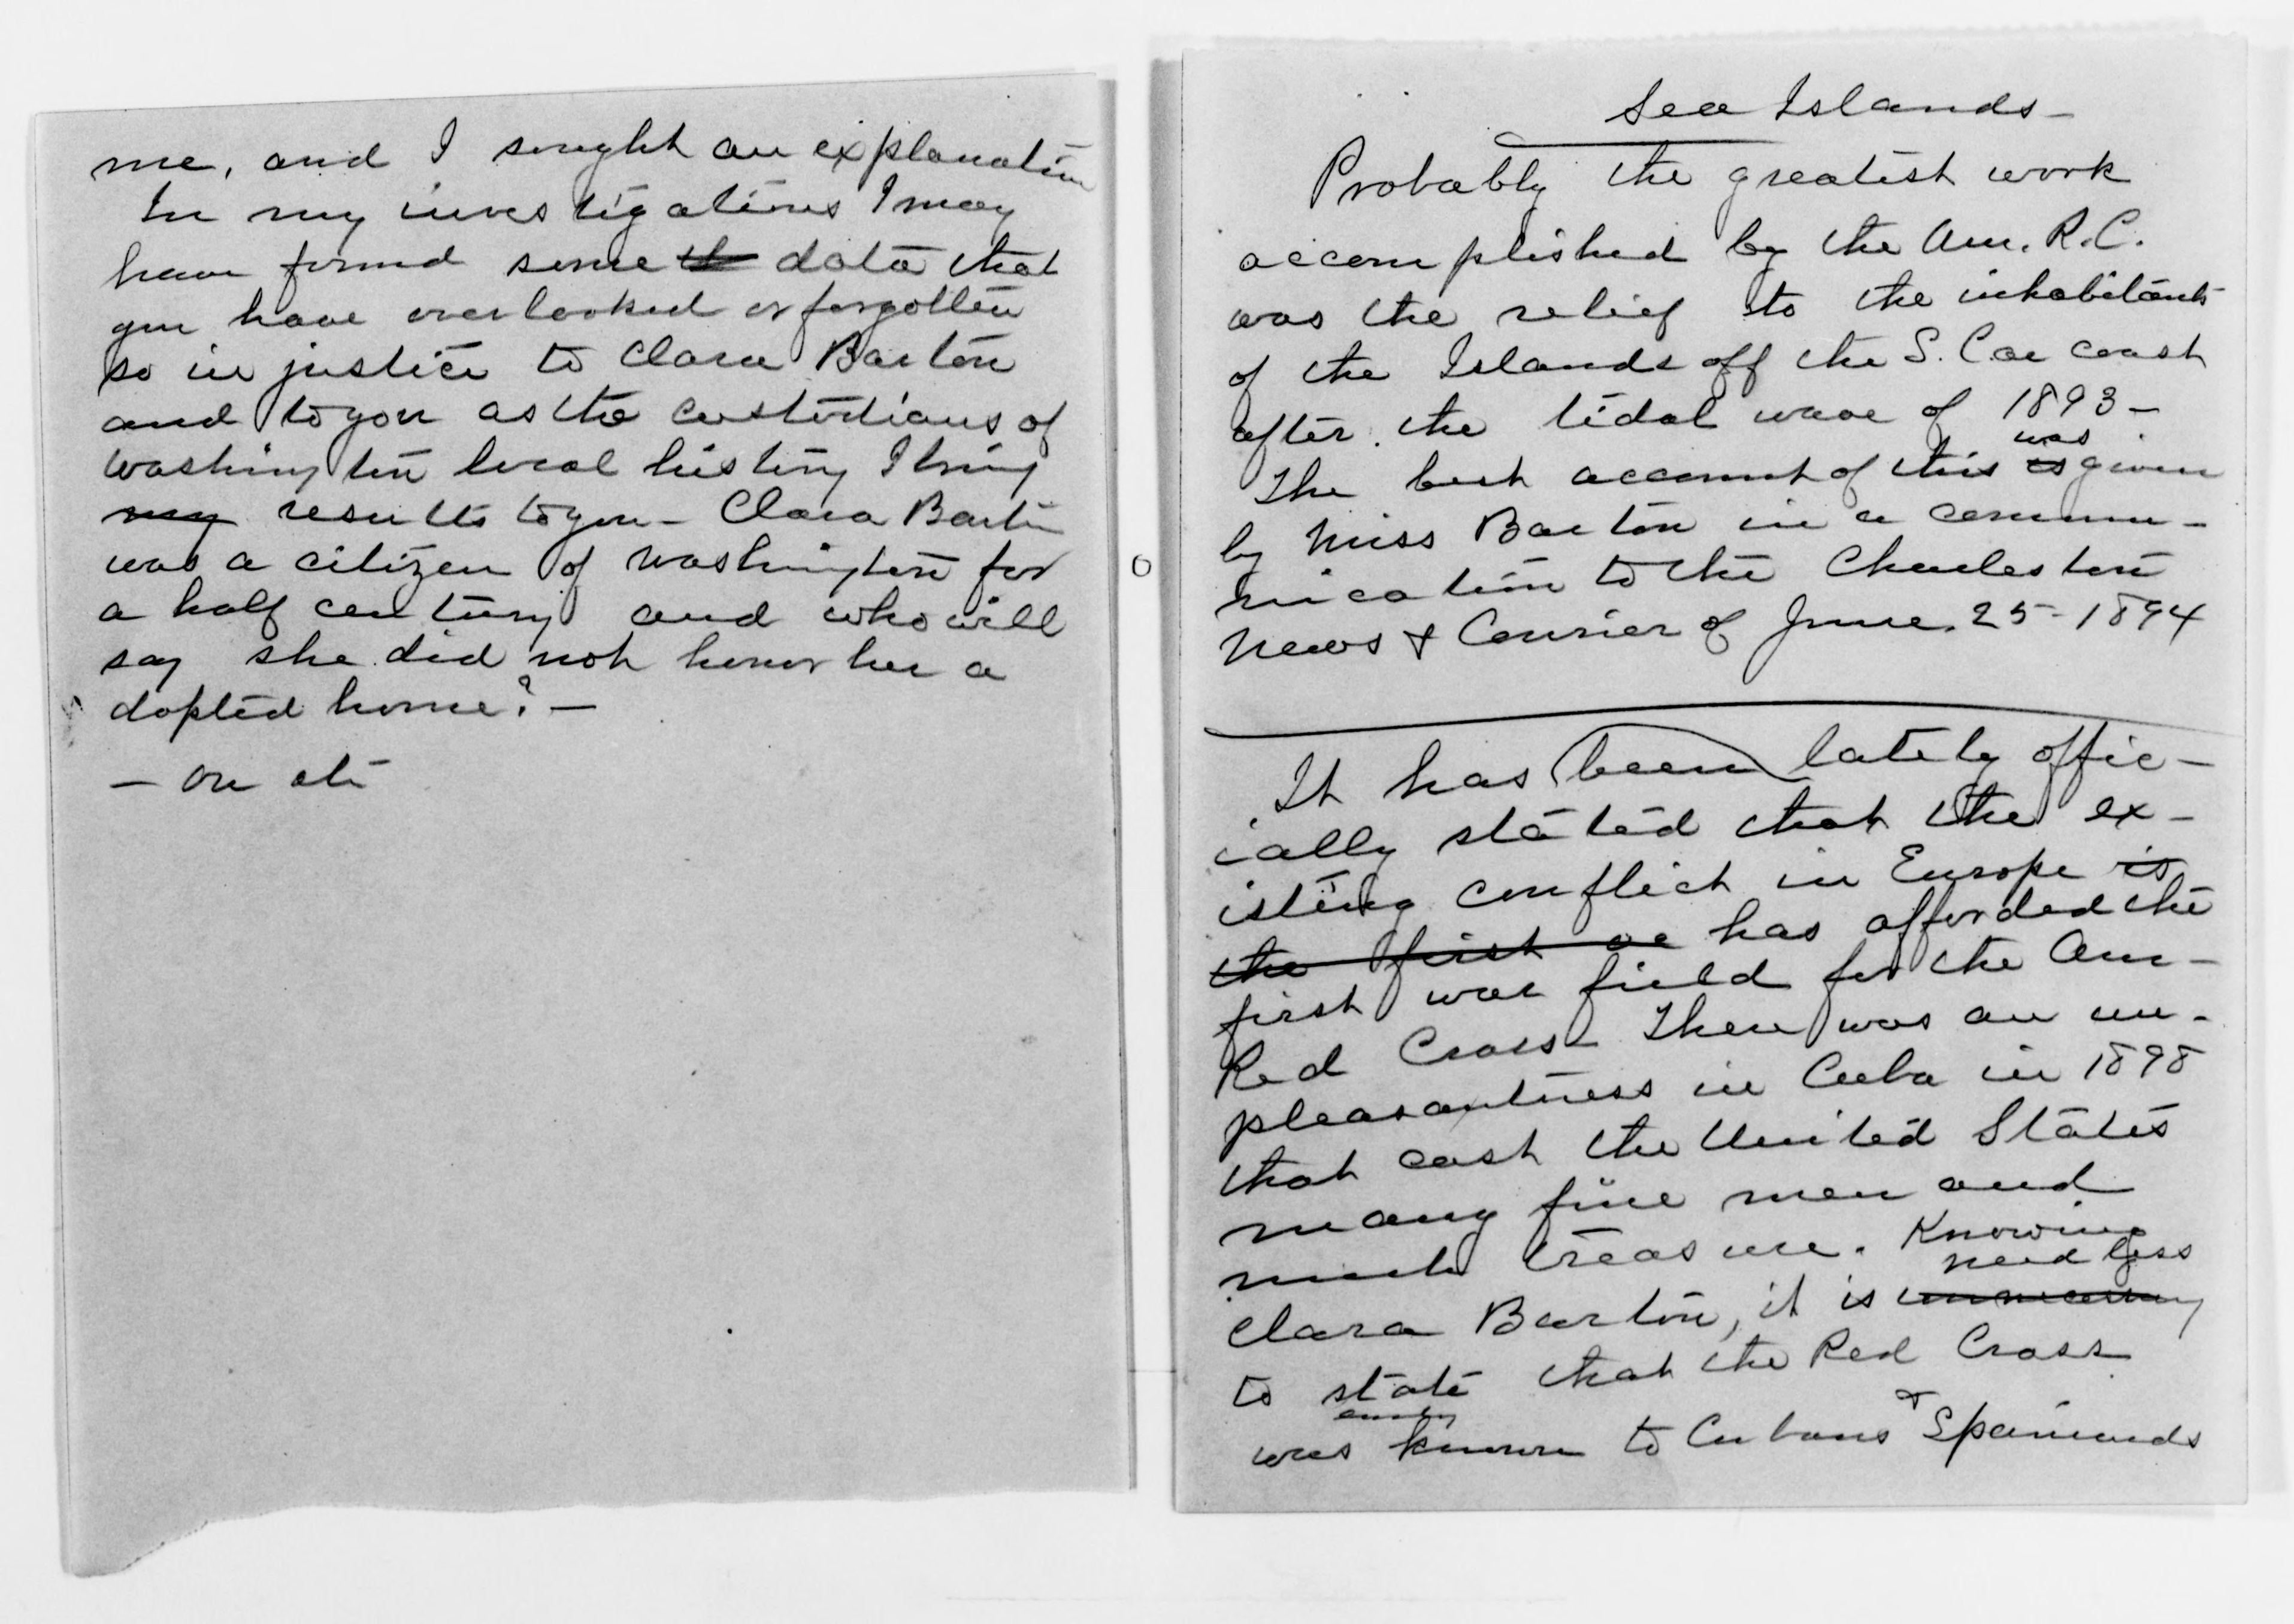 me, and I sought an explanation
In my investigations I may
have found some th data that
you have overlooked or forgotten
so in justice to Clara Barton
and to you as the custodians of
Washington local history I bring
my results to you – Clara Barton
was a citizen of Washington for
a half century and who will
say she did not honor her a
dopted home? –
Sea Islands –
Probably the greatest work
accomplished by the Am. R. C.
was the relief to the inhabitants
of the Islands off the S. Ca coast
after the tidal wave of 1893 –
was
The best account of this is given
by Miss Barton in a commu–
nication to the Charleston
News & Courier of June 25– 1894
It has been lately offic–
ially stated that the ex–
isting conflict in Europe is
the first oc has afforded the
first war field for the Am–
Red Cross There was an un–
pleasantness in Cuba in 1898
that cost the United States
many fine men and
much treasure. Knowing
needless
Clara Barton, it is unnecessary
to state that the Red Cross
was known to Cubans & Spaniards